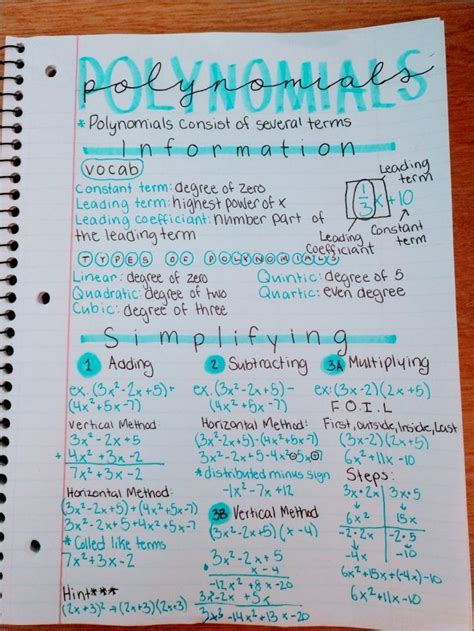 POLYNOMIALS
polynomials
* Polynomials consist of several terms
Information
vocab
Constant term: degree of zero
Leading term: highest power of x
Leading coefficiant: number part of
the leading term
Leading
term
1/3 x + 10
Leading
Coefficiant
Constant
term
TYPES OF POLYNOMIALS
Linear: degree of zero
Quadratic: degree of two
Cubic: degree of three
Quintic: degree of 5
Quartic: even degree
Simplifying
1 Adding
ex. (3x²-2x+5)+
(4x²+5x-7)
Vertical Method:
3x²-2x+5
+ 4x²+3x-2
7x²+3x-2
Horizontal Method:
(3x²-2x+5)+(4x²+5x-7)
3x²-2x+5+4x²+5x-7
* Called like terms
7x²+3x-2
Hint***
(2x+3)²→(2x+3)(2x+3)
2 Subtracting
ex. (3x²-2x+5)-
(4x²+5x-7)
Horizontal Method:
(3x²-2x+5)-(4x²+5x-7)
3x²-2x+5-4x²-5x+7
* distributed minus sign
-1x²-7x+12
3B Vertical Method
(3x²-2x+5)(x-4)
3x²-2x+5
x-4
-12x²+8x-20
3x³-2x+5x
3x³-14x²+13x-20
3A Multiplying
ex: (3x-2)(2x+5)
F.O.I.L
First, outside, Inside, Last
(3x-2)(2x+5)
6x²+11x-10
Steps:
3x•2x | 3x•5
6x² | 15x
-2•2x | -2•5
-4x | -10
6x²+15x+(-4x)-10
6x²+11x-10